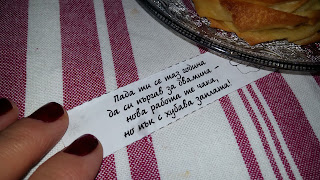 Пада ти се таз година
да си пъргав за двамина -
нова работа те чака,
но пък с хубава заплата!